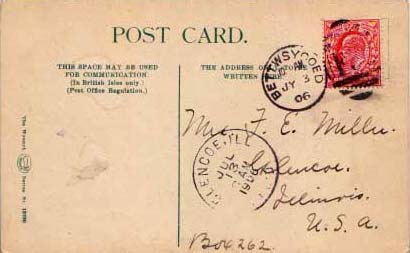 POST CARD.
THIS SPACE MAY BE USED
FOR COMMUNICATION
(In British Isles only.)
(Post Office Regulation.)
THE ADDRESS
WRITTEN HERE.
BETTWSYCOED
AM
JY 3
06
GLENCOE, ILL.
JUL
13
AM
F. E. Miller
Glencoe.
Illinois.
U.S.A.
Box 262.